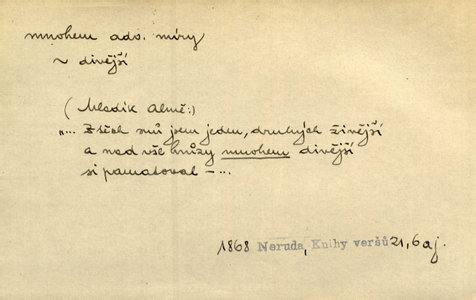 mnohem adv. míry
~ divější
(Mladík Almě:)
"... Z těch snů jsem jeden, druhých živější
a nad vše hrůzy mnohem divější
si pamatoval – ...
1868 Neruda, Knihy veršů 21, 6 aj.